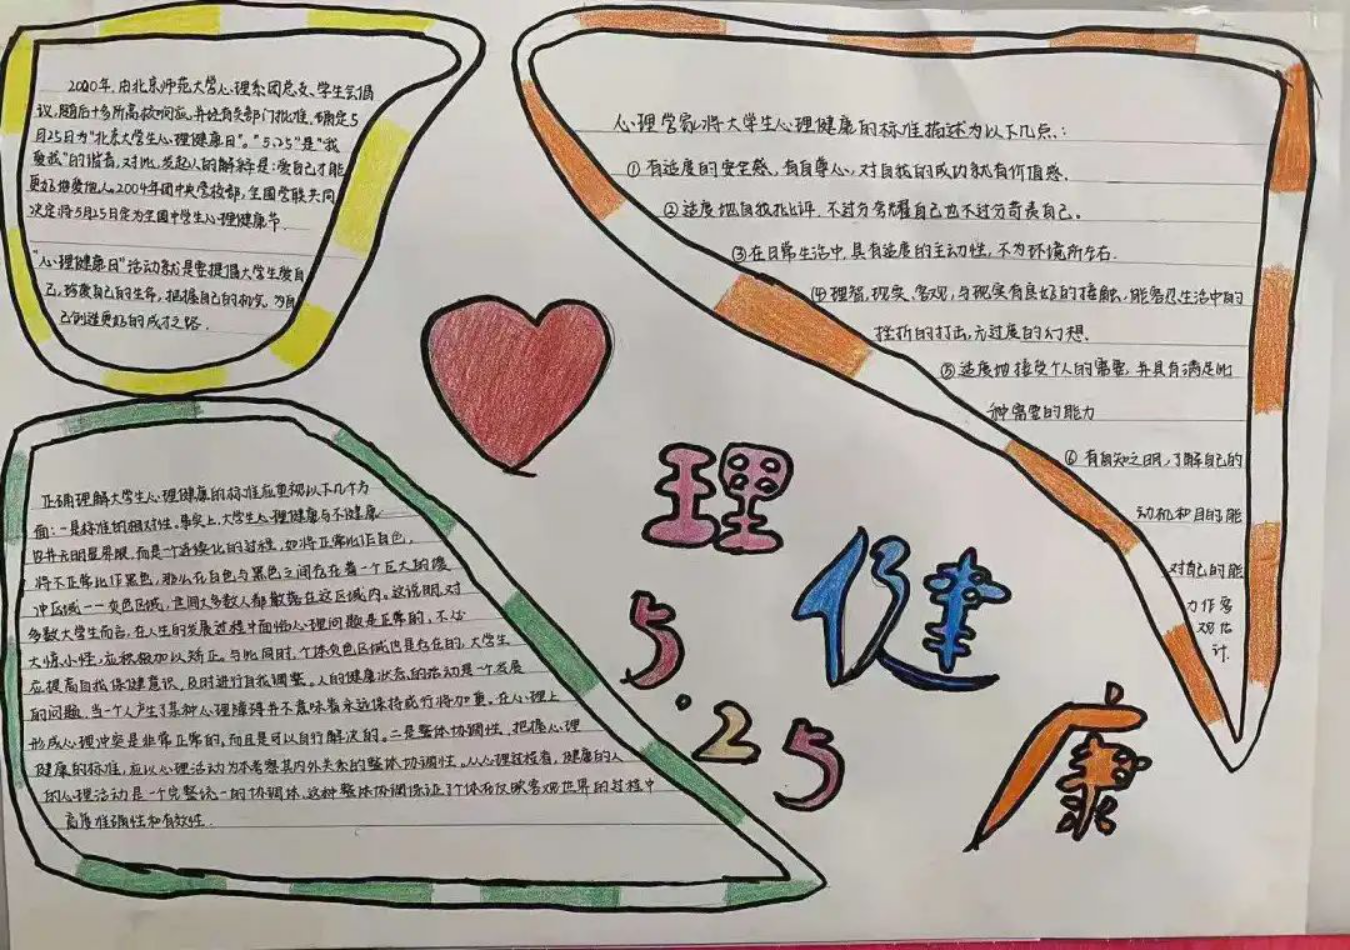 2000年,由北京师范大学心理系团总支、学生会倡
议,随后十多所高校响应,并经有关部门批准,确定5
月25日为"北京大学生心理健康日"。"5.25"是"我
爱我"的谐音,对此,发起人的解释是:爱自己才能
更好地爱他人。2004年团中央学校部,全国学联共同
决定将5月25日定为全国中学生心理健康节.
"心理健康日"活动就是要提倡大学生爱自
己,珍爱自己的生命,把握自己的机会,为自
己创造更好的成才之路.
心理学家将大学生心理健康的标准描述为以下几点:
①有适度的安全感,有自尊心,对自我的成功就有价值感.
②适度地自我批评,不过分夸耀自己也不过分苛责自己。
③在日常生活中,具有适度的主动性,不为环境所左右.
④理智,现实,客观,与现实有良好的接触,能容忍生活中的
挫折的打击,无过度的幻想.
⑤适度地接受个人的需要,并具有满足此
种需要的能力
⑥有自知之明,了解自己的
动机和目的能
对自己的能
力作客
观估
计.
理
健
康
5.25
正确理解大学生心理健康的标准应重视以下几个方
面:一是标准的相对性。事实上,大学生心理健康与不健康
自并无明显界限,而是一个连续化的过程,如将正常比作白色,
将不正常比作黑色,那么在白色与黑色之间存在着一个巨大的缓
冲区域一一灰色区域,世间大多数人都散落在这区域内。这说明,对
多数大学生而言,在人生的发展过程中面临心理问题是正常的,不必
大惊小怪,应积极加以矫正。与此同时,个体灰色区域也是存在的,大学生
应提高自我保健意识,及时进行自我调整。人的健康状态的活动是一个发展
的问题,当一个人产生了某种心理障碍并不意味着永远保持或行将加重,在心理上
形成心理冲突是非常正常的,而且是可以自行解决的。二是整体协调性,把握心理
健康的标准,应以心理活动为本考察其内外关系的整体协调性。从心理过程看,健康的人
的心理活动是一个完整统一的协调体,这种整体协调保证了个体在反映客观世界的过程中
高度准确性和有效性.